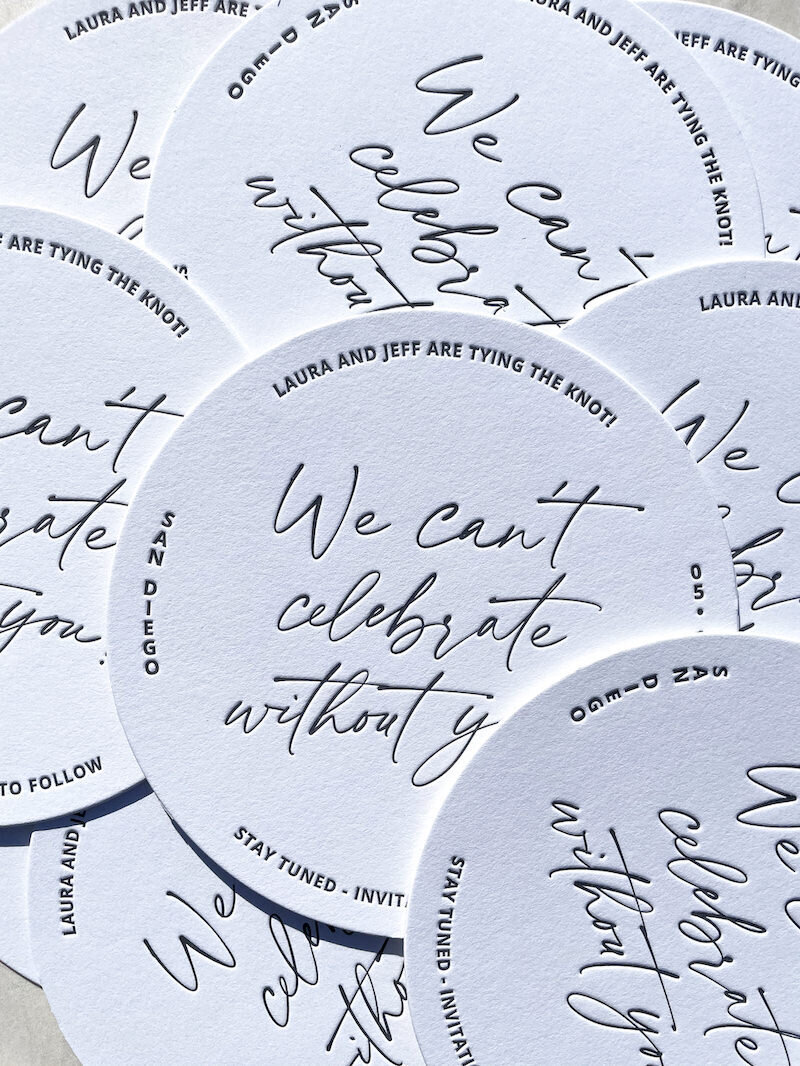 LAURA AND JEFF ARE
SAN DIEGO
LAURA AND JEFF ARE TYING THE KNOT!
JEFF ARE TYING
We
We can't
celebrate
without
ARE TYING THE KNOT!
LAURA AND
can't
you.
TO FOLLOW
We
LAURA AND JEFF ARE TYING THE KNOT!
We can't
celebrate
without y
SAN DIEGO
05.
STAY TUNED - INVIT
LAURA AND
We
SAN DIEGO
We
celebrate
without yo
STAY TUNED - INVITATI